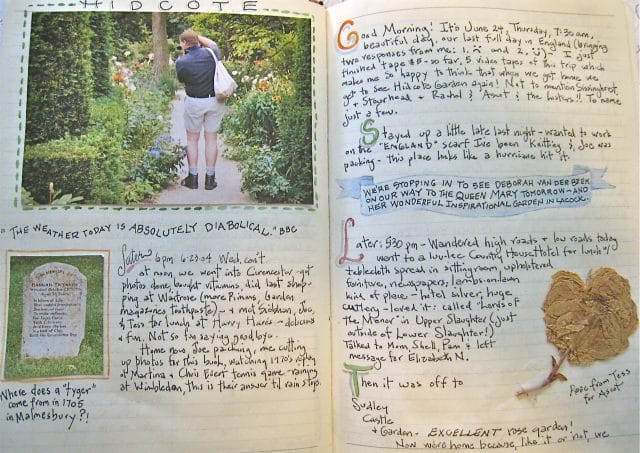 HIDCOTE
"THE WEATHER TODAY IS ABSOLUTELY DIABOLICAL." BBC
Later 6pm 6-23-04 Wed, con't.
at noon, we went into Cirencester - got
photos done, bought vitamins, did last shop-
ping at Waitrose (more Pimms, Garden
magazines, toothpaste) - + met Siobhan, Joe,
& Tess for lunch at Harry Hares - delicious
& fun. Not so fun saying goodbye.
Home now Joe packing, me cutting
up photos for this book, watching 1970's replay
of Martina & Chris Evert tennis game - raining
at Wimbledon, this is their answer til rain stops.
HANNAH TWYNNOY
Where does a "tyger"
come from in 1705
in Malmesbury?!
Good Morning! It's June 24, Thursday, 7:30 am,
beautiful day, our last full day in England (bringing
two responses from me: 1. and 2. ) I just
finished tape #5 - so far, 5 video tapes of this trip which
makes me so happy to think that when we get home we
get to see Hidcote Garden again! Not to mention Sissinghurst,
& Stourhead & Rachel & Ascot & the . To name
just a few.
Stayed up a little late last night - wanted to work
on the "ENGLAND" scarf I've been Knitting & Joe was
packing - this place looks like a hurricane hit it.
WE'RE STOPPING IN TO SEE DEBORAH VAN DER BEEK
ON OUR WAY TO THE QUEEN MARY TOMORROW - AND
HER WONDERFUL INSPIRATIONAL GARDEN IN LACOCK.
Later: 5:30 pm - Wandered high roads + low roads today
went to a luv-lee Country House Hotel for lunch w/
tablecloth spread in sitting room, upholstered
furniture, newspapers, lambs-on-lawn
kind of place - hotel silver, huge
cutlery - loved it! called 'Lords of
the Manor' in Upper Slaughter (just
outside of Lower Slaughter!)
Talked to Mom, Shelly, Pam & left
message for Elizabeth N.
Rose from Tess
for Ascot
Then it was off to
Sudley
Castle
& Garden - EXCELLENT rose garden!
Now we're home because, like it or not, we